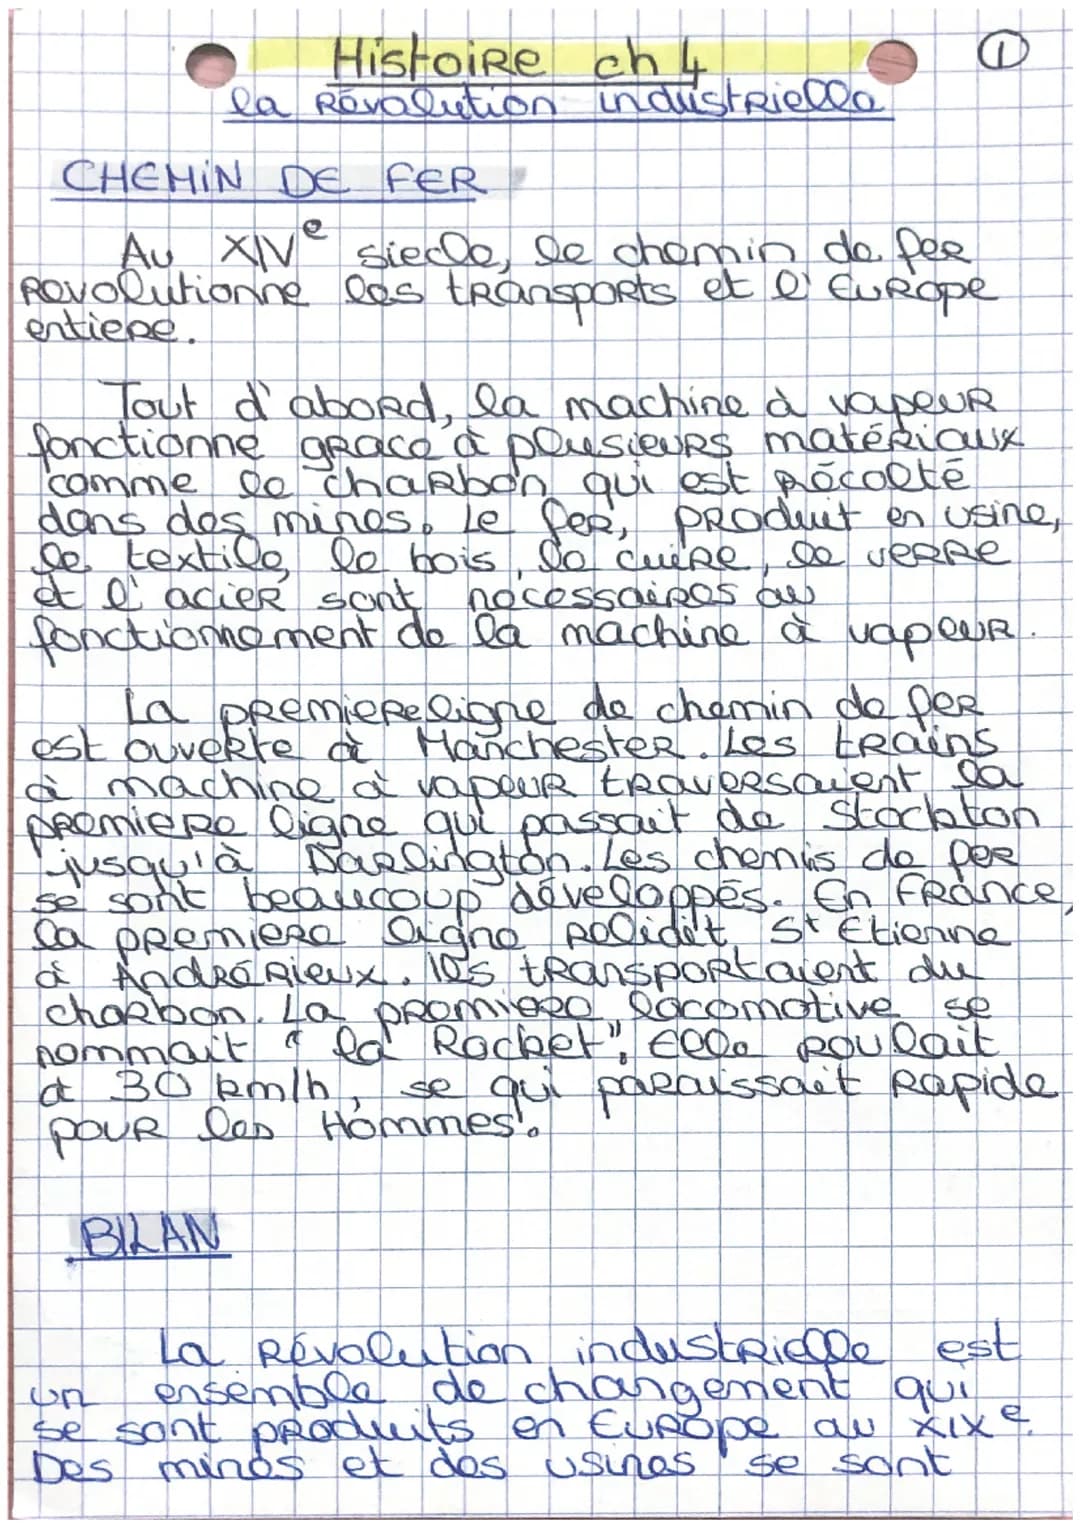 Histoire ch 4
①
la Révolution industrielle
CHEMIN DE FER
Au XIVe siecle, le chemin de fer
revolutionne les transports et l'Europe
entiere.
Tout d'abord, la machine à vapeur
fonctionne grace à plusieurs matériaux
comme le charbon qui est récolté
dans des mines. Le fer, produit en usine,
le textile, le bois, le cuire, le verre
et l'acier sont necessaires au
fonctionnement de la machine à vapeur.
La premiere ligne de chemin de fer
est ouverte à Manchester. Les trains
à machine à vapeur traversaient la
premiere ligne qui passait de Stockton
jusqu'à Darlington. Les chemis de fer
se sont beaucoup développés. En France,
la premiere ligne relidit St Etienne
à Andrérieux. Ils transportaient du
charbon. La premiere locomotive se
nommait "la Rocket". Elle roulait
à 30 km/h, se qui paraissait rapide
pour les Hommes.
BILAN
La Révolution industrielle est
un ensemble de changement qui
se sont produits en Europe au XIXe.
Des mines et des usines se sont